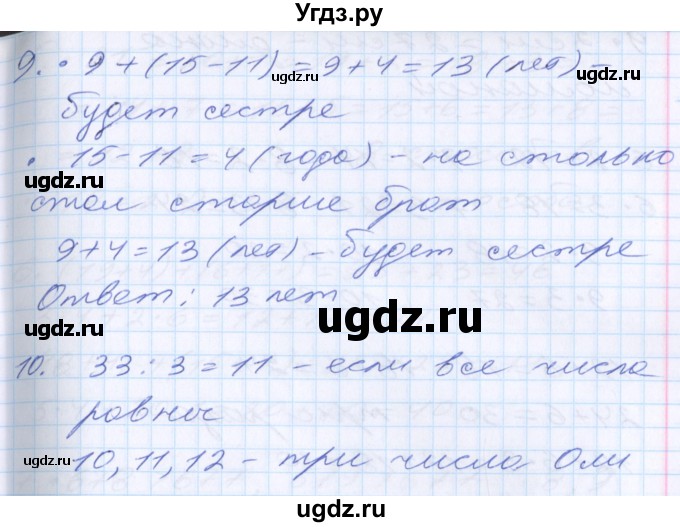 Угдз.ру
9. • 9 + (15 - 11) = 9 + 4 = 13 (лет) -
ugdz.ru ugdz.ru
будет сестре
• 15 - 11 = 4 (года) - на столько
ugdz.ru
стал старше брат
ugdz.ru
9 + 4 = 13 (лет) - будет сестре
Ответ: 13 лет
ugdz.ru ugdz.ru
10. 33 : 3 = 11 - если все числа
равны
10, 11, 12 - три числа Оли
ugdz.ru
ugdz.ru ugdz.ru